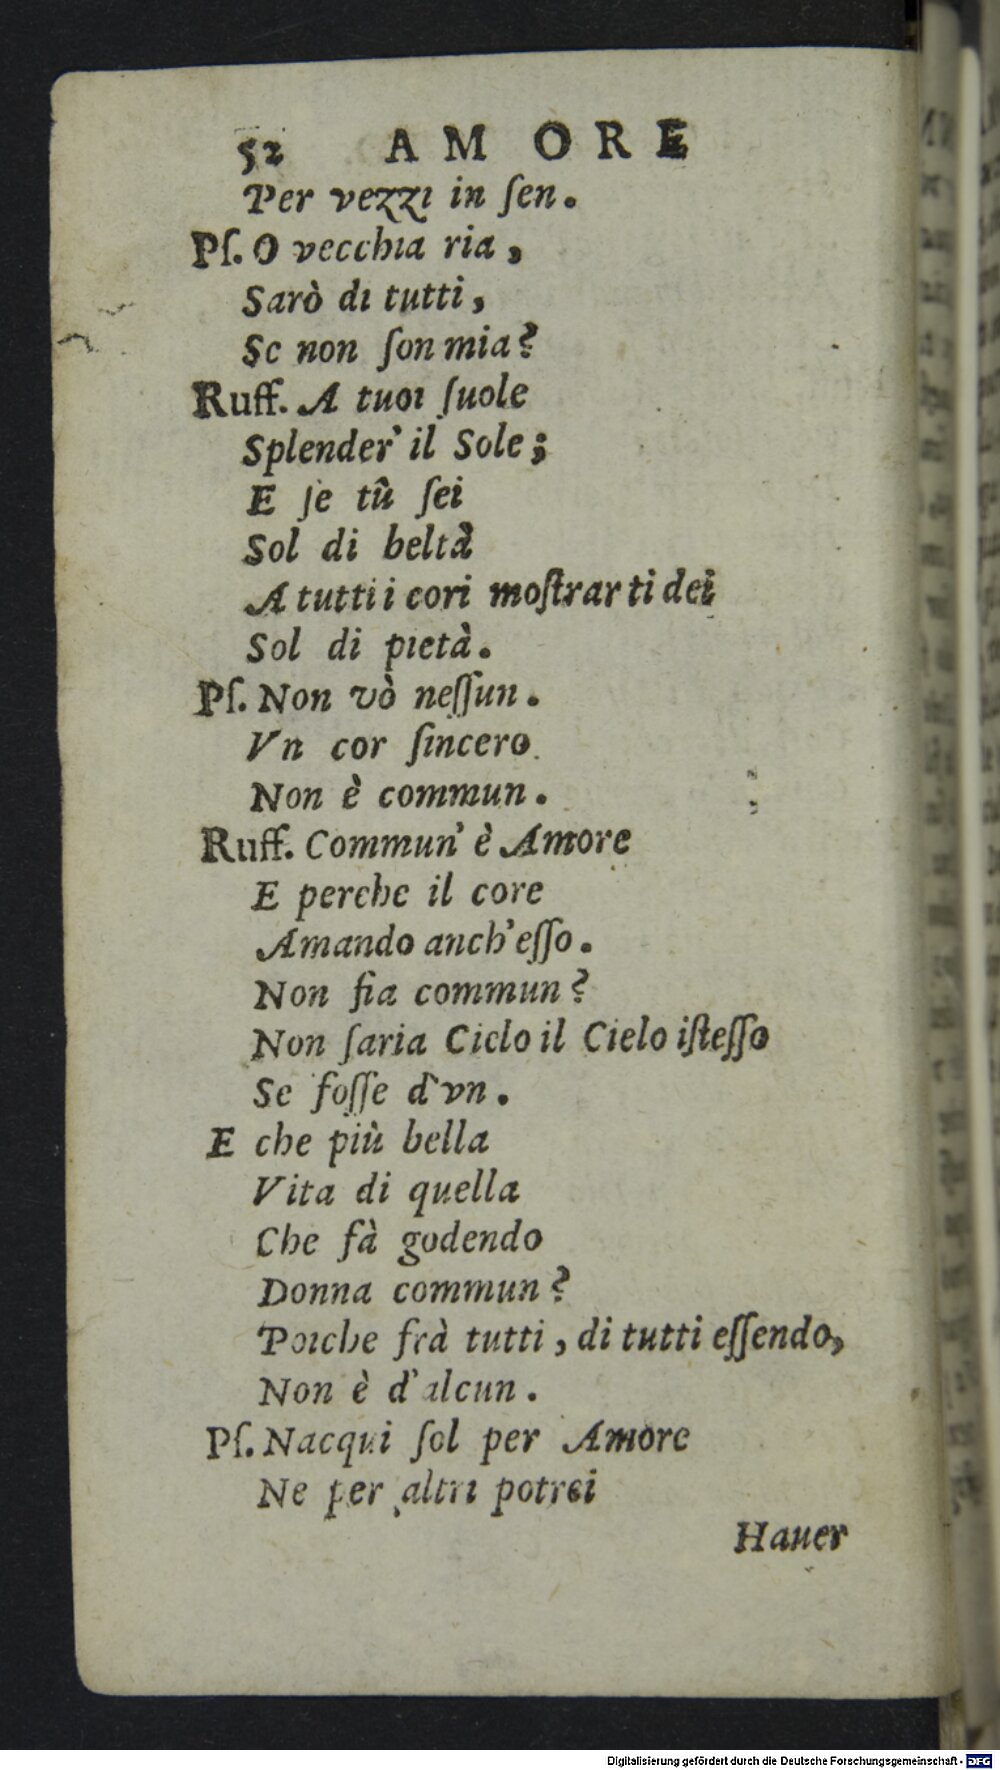 52 AMORE
Per vezzi in ſen.
Pſ. O vecchia ria,
Sarò di tutti,
Se non ſon mia?
Ruff. A tuoi ſuole
Splender' il Sole;
E ſe tû ſei
Sol di beltà
A tutti i cori moſtrar ti dei
Sol di pietà.
Pſ. Non vò neſſun.
Vn cor ſincero
Non è commun.
Ruff. Commun' è Amore
E perche il core
Amando anch'eſſo.
Non fia commun?
Non ſaria Cielo il Cielo iſteſſo
Se foſſe d'vn.
E che più bella
Vita di quella
Che fà godendo
Donna commun?
Poiche frà tutti, di tutti eſſendo,
Non è d'alcun.
Pſ. Nacqui ſol per Amore
Ne per altri potrei
Hauer
Digitalisierung gefördert durch die Deutsche Forschungsgemeinschaft - DFG